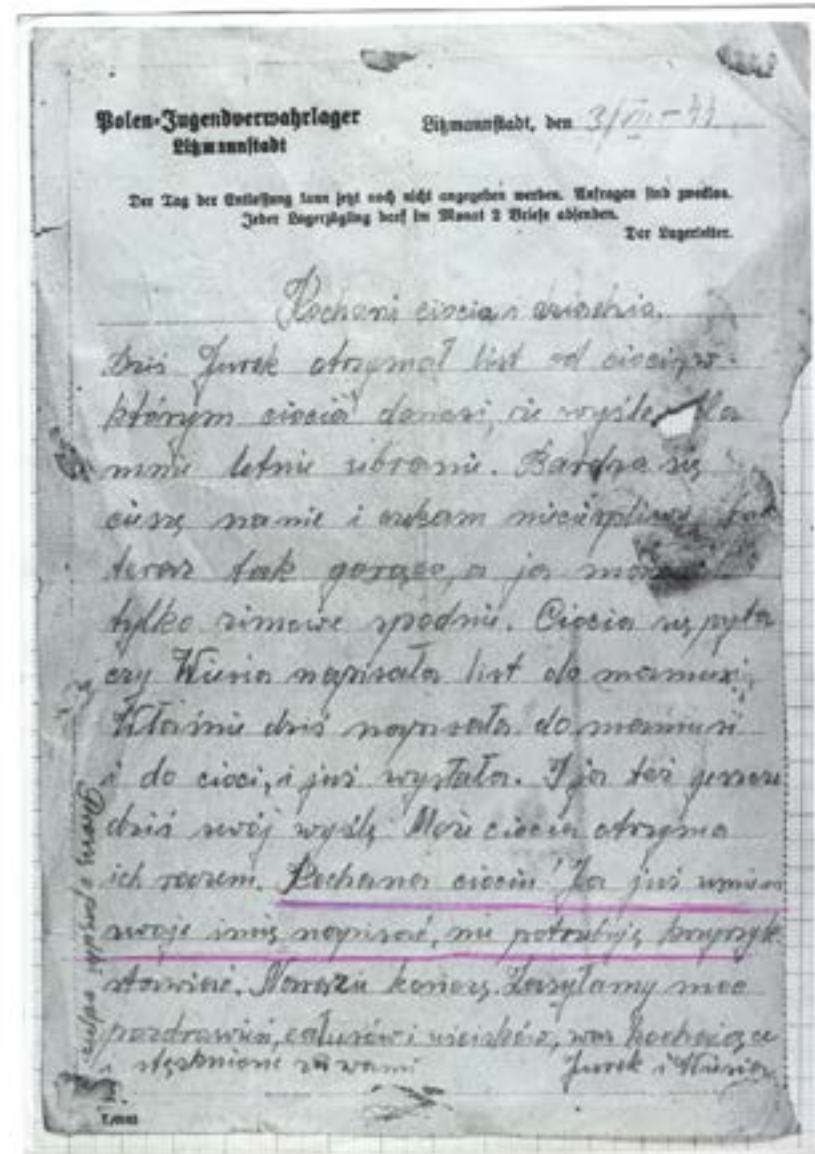 Polen-Jugendverwahrlager
Litzmannstadt
Litzmannstadt, den 3/VII-44
Der Tag der Entlassung kann jetzt noch nicht angegeben werden. Anfragen sind zwecklos.
Jeder Lagerzögling darf im Monat 2 Briefe absenden.
Der Lagerleiter.
Kochani ciocia i dziadzia.
Dziś Jurek otrzymał list od cioci, w
którym ciocia donosi, że wyśle dla
mnie letnie ubranie. Bardzo się
cieszę na nie i czekam niecierpliwie, bo
teraz tak gorąco, a ja mam
tylko zimowe spodnie. Ciocia się pyta
czy Wiesia napisała list do mamusi,
Właśnie dziś napisała do mamusi
i do cioci, i już wysłała. I ja też jeszcze
dziś swój wyślę. Może ciocia otrzyma
ich razem. Kochana ciociu! Ja już umiem
swoje imię napisać, nie potrzebuję krzyżyk
stawiać. Narazie kończę. Zasyłamy moc
pozdrowień, całusów i uścisków, was kochające
i stęsknione za wami
Jurek i Wiesia
Proszę o prędki odpis.